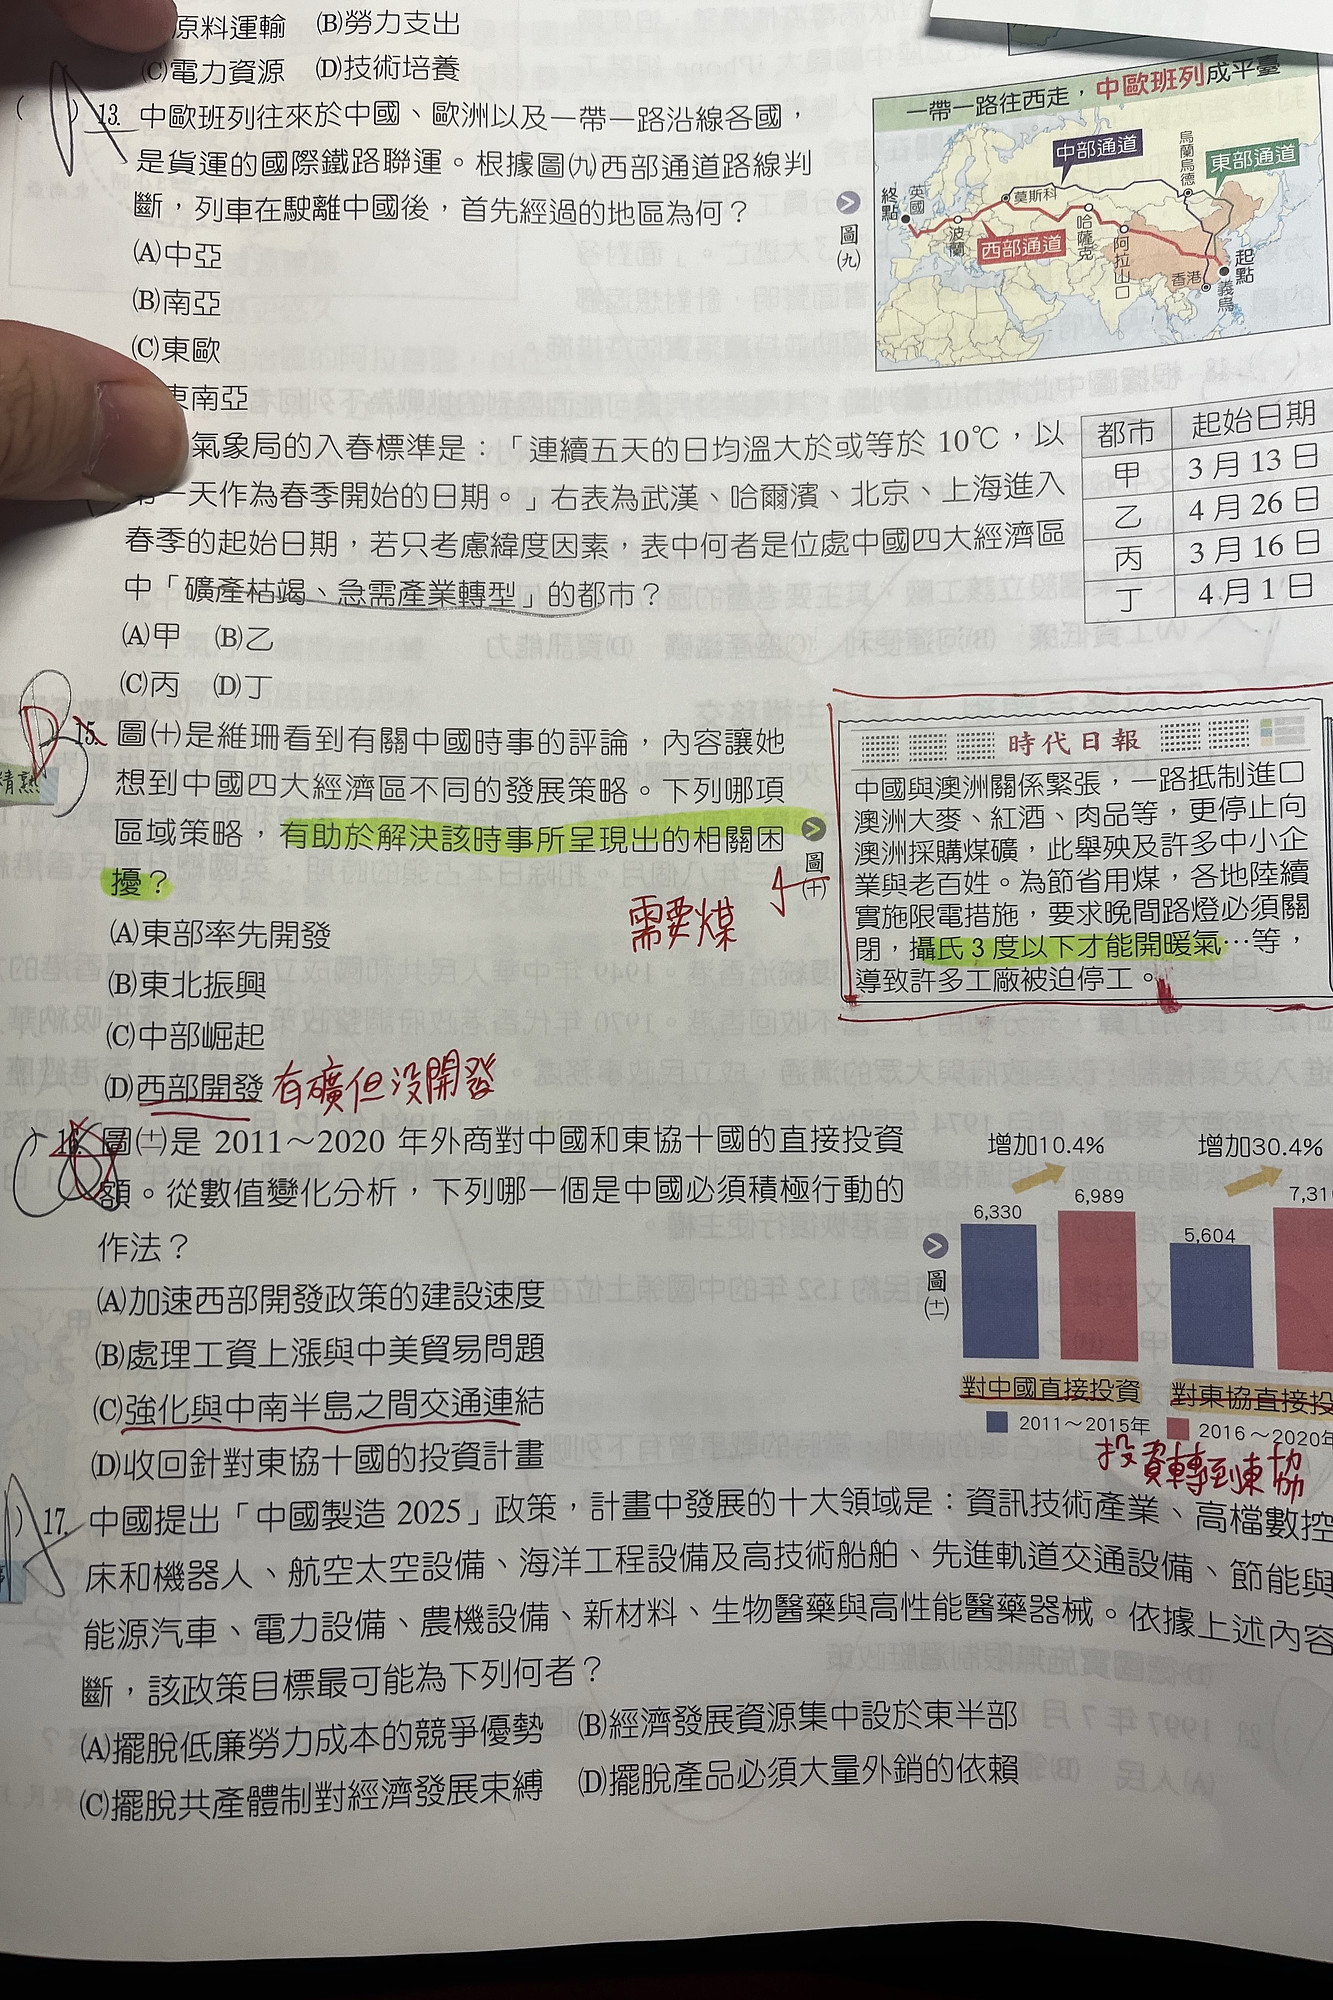 原料運輸 (B)勞力支出
(C)電力資源 (D)技術培養
( A ) 13. 中歐班列往來於中國、歐洲以及一帶一路沿線各國，
是貨運的國際鐵路聯運。根據圖(九)西部通道路線判
斷，列車在駛離中國後，首先經過的地區為何？
(A)中亞
(B)南亞
(C)東歐
東南亞
一帶一路往西走，中歐班列成平臺
中部通道
烏蘭烏德
東部通道
終點
英國
莫斯科
波蘭
西部通道
哈薩克
阿拉山口
香港
起點
義烏
圖(九)
氣象局的入春標準是：「連續五天的日均溫大於或等於 10℃，以
第一天作為春季開始的日期。」右表為武漢、哈爾濱、北京、上海進入
春季的起始日期，若只考慮緯度因素，表中何者是位處中國四大經濟區
中「礦產枯竭、急需產業轉型」的都市？
(A)甲 (B)乙
(C)丙 (D)丁
都市 起始日期
甲 3 月 13 日
乙 4 月 26 日
丙 3 月 16 日
丁 4 月 1 日
精熟
15. 圖(十)是維珊看到有關中國時事的評論，內容讓她
想到中國四大經濟區不同的發展策略。下列哪項
區域策略，有助於解決該時事所呈現出的相關困
擾？
(A)東部率先開發
(B)東北振興
(C)中部崛起
(D)西部開發 有礦但没開發
需要煤
圖(十)
時代日報
中國與澳洲關係緊張，一路抵制進口
澳洲大麥、紅酒、肉品等，更停止向
澳洲採購煤礦，此舉殃及許多中小企
業與老百姓。為節省用煤，各地陸續
實施限電措施，要求晚間路燈必須關
閉，攝氏 3 度以下才能開暖氣…等，
導致許多工廠被迫停工。
) 16. 圖(十一)是 2011～2020 年外商對中國和東協十國的直接投資
額。從數值變化分析，下列哪一個是中國必須積極行動的
作法？
(A)加速西部開發政策的建設速度
(B)處理工資上漲與中美貿易問題
(C)強化與中南半島之間交通連結
(D)收回針對東協十國的投資計畫
圖(十一)
增加10.4% 增加30.4%
6,330 6,989 5,604 7,31
對中國直接投資 對東協直接投
2011～2015年 2016～2020年
投資轉到東協
) 17. 中國提出「中國製造 2025」政策，計畫中發展的十大領域是：資訊技術產業、高檔數控
床和機器人、航空太空設備、海洋工程設備及高技術船舶、先進軌道交通設備、節能與
能源汽車、電力設備、農機設備、新材料、生物醫藥與高性能醫藥器械。依據上述內容
斷，該政策目標最可能為下列何者？
(A)擺脫低廉勞力成本的競爭優勢 (B)經濟發展資源集中設於東半部
(C)擺脫共產體制對經濟發展束縛 (D)擺脫產品必須大量外銷的依賴